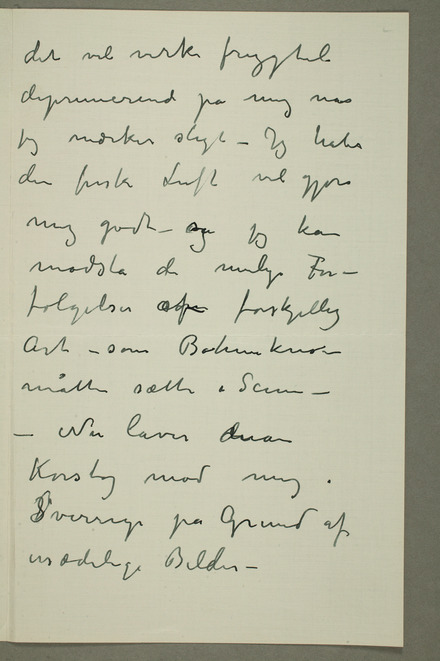 det vil virke frygteli
deprimerend på mig naar
jeg mærker sligt – Jeg haber
den friske Luft vil gjøre
mig godt – så jeg kan
modstå de mulige For–
følgelser af forskjellig
Art – som Bohemkne–
måtte sætte i Scene –
– Nu laver man
Korstog mod mig i
Sverrige på Grund af
usædelige Billder –